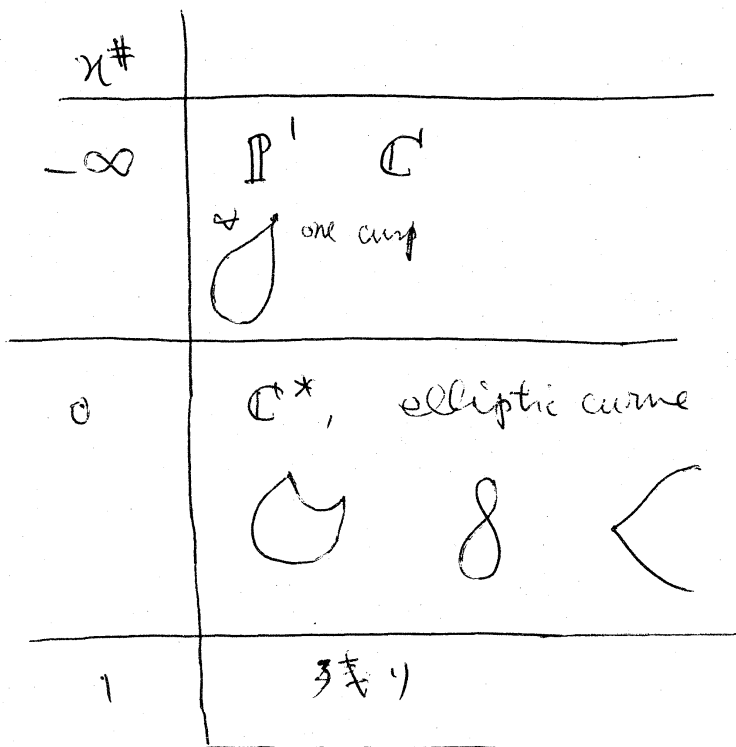 κ#
-∞ ℙ¹ ℂ
one cusp
0 ℂ*, elliptic curve
1 残り